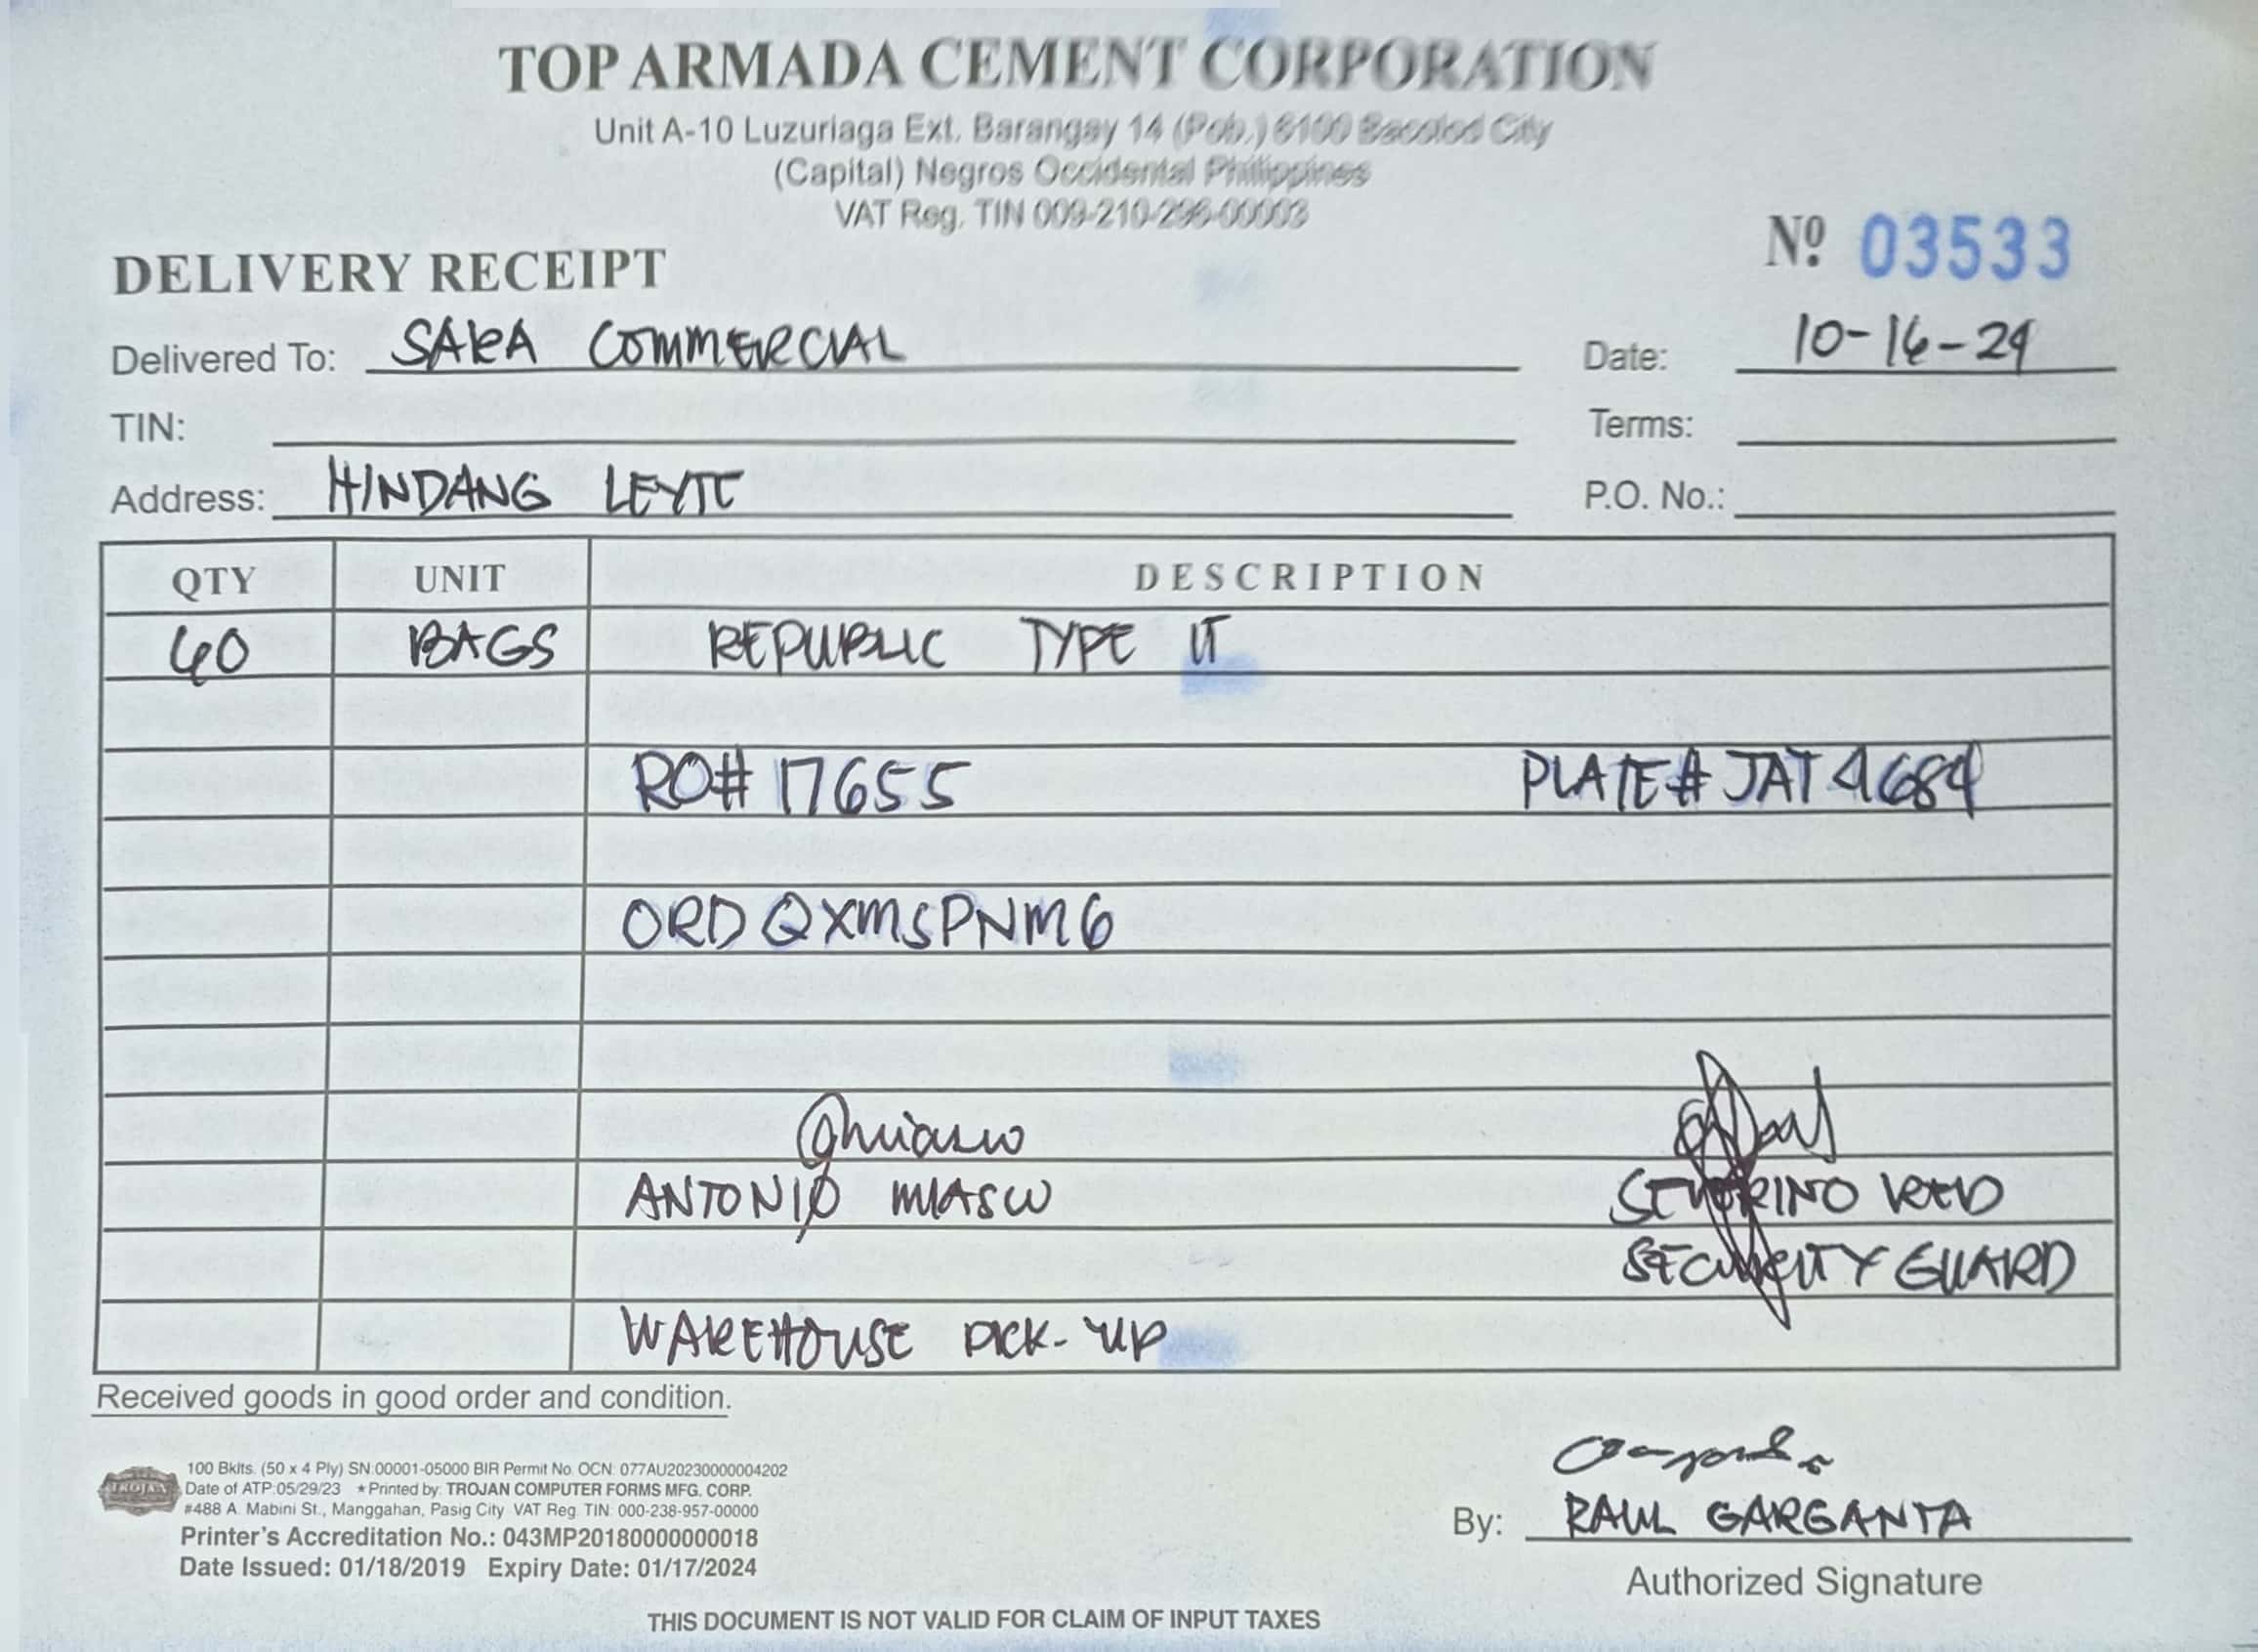 TOP ARMADA CEMENT CORPORATION
Unit A-10 Luzuriaga Ext. Barangay 14 (Pob.) 6100 Bacolod City
(Capital) Negros Occidental Philippines
VAT Reg. TIN 009-210-296-00003
Nº 03533
DELIVERY RECEIPT
Delivered To: SARA COMMERCIAL Date: 10-16-24
TIN: Terms:
Address: HINDANG LEYTE P.O. No.:
QTY UNIT DESCRIPTION
40 BAGS REPUBLIC TYPE IT
RO# 17655 PLATE# JAT 4684
ORD QXMSPNM6
ANTONIO SEVERINO
SECURITY GUARD
WAREHOUSE PICK-UP
Received goods in good order and condition.
TROJAN
100 Bklts. (50 x 4 Ply) SN:00001-05000 BIR Permit No. OCN: 077AU20230000004202
Date of ATP:05/29/23 ★Printed by: TROJAN COMPUTER FORMS MFG. CORP.
#488 A. Mabini St., Manggahan, Pasig City VAT Reg. TIN: 000-238-957-00000
Printer's Accreditation No.: 043MP20180000000018
Date Issued: 01/18/2019 Expiry Date: 01/17/2024
By: RAUL GARGANTA
Authorized Signature
THIS DOCUMENT IS NOT VALID FOR CLAIM OF INPUT TAXES